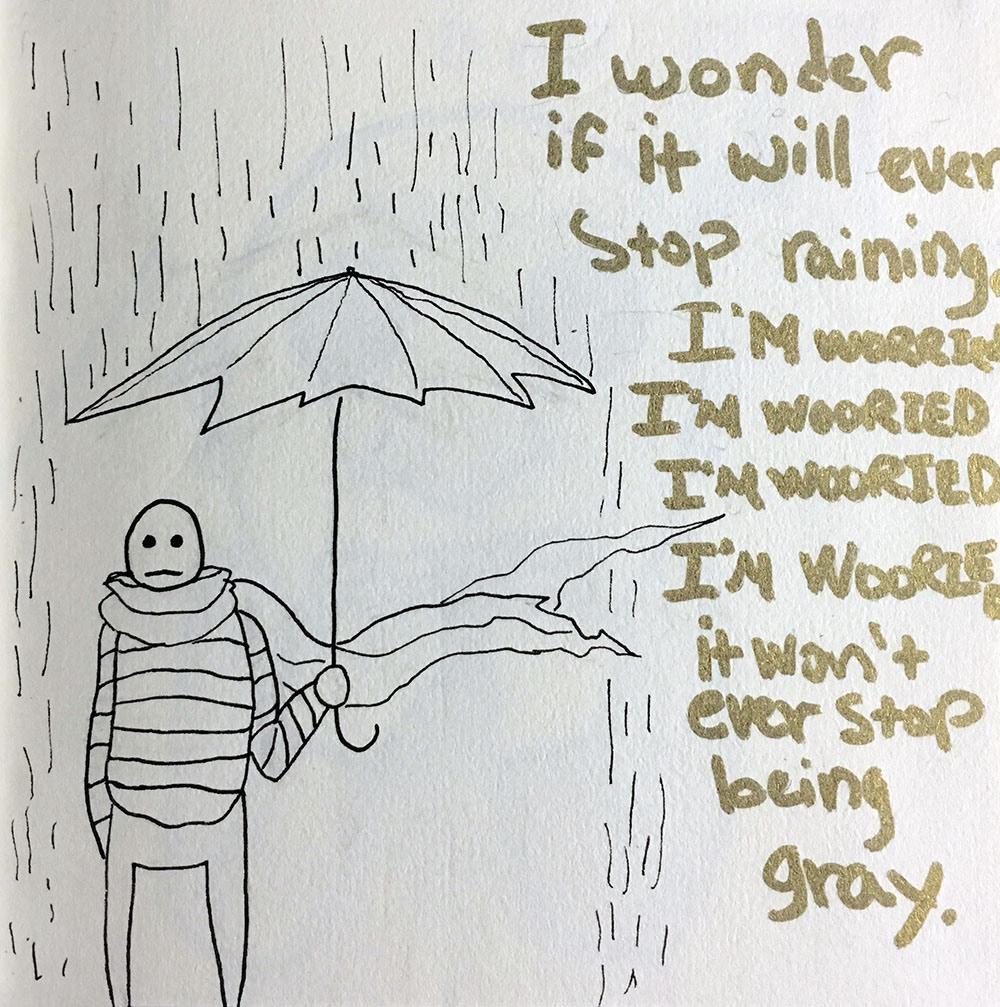 I wonder
if it will ever
Stop raining.
I'M WORRIE
I'M WOORIED
I'M WOORIED
I'M WOORIE
it won't
ever Stop
being
gray.